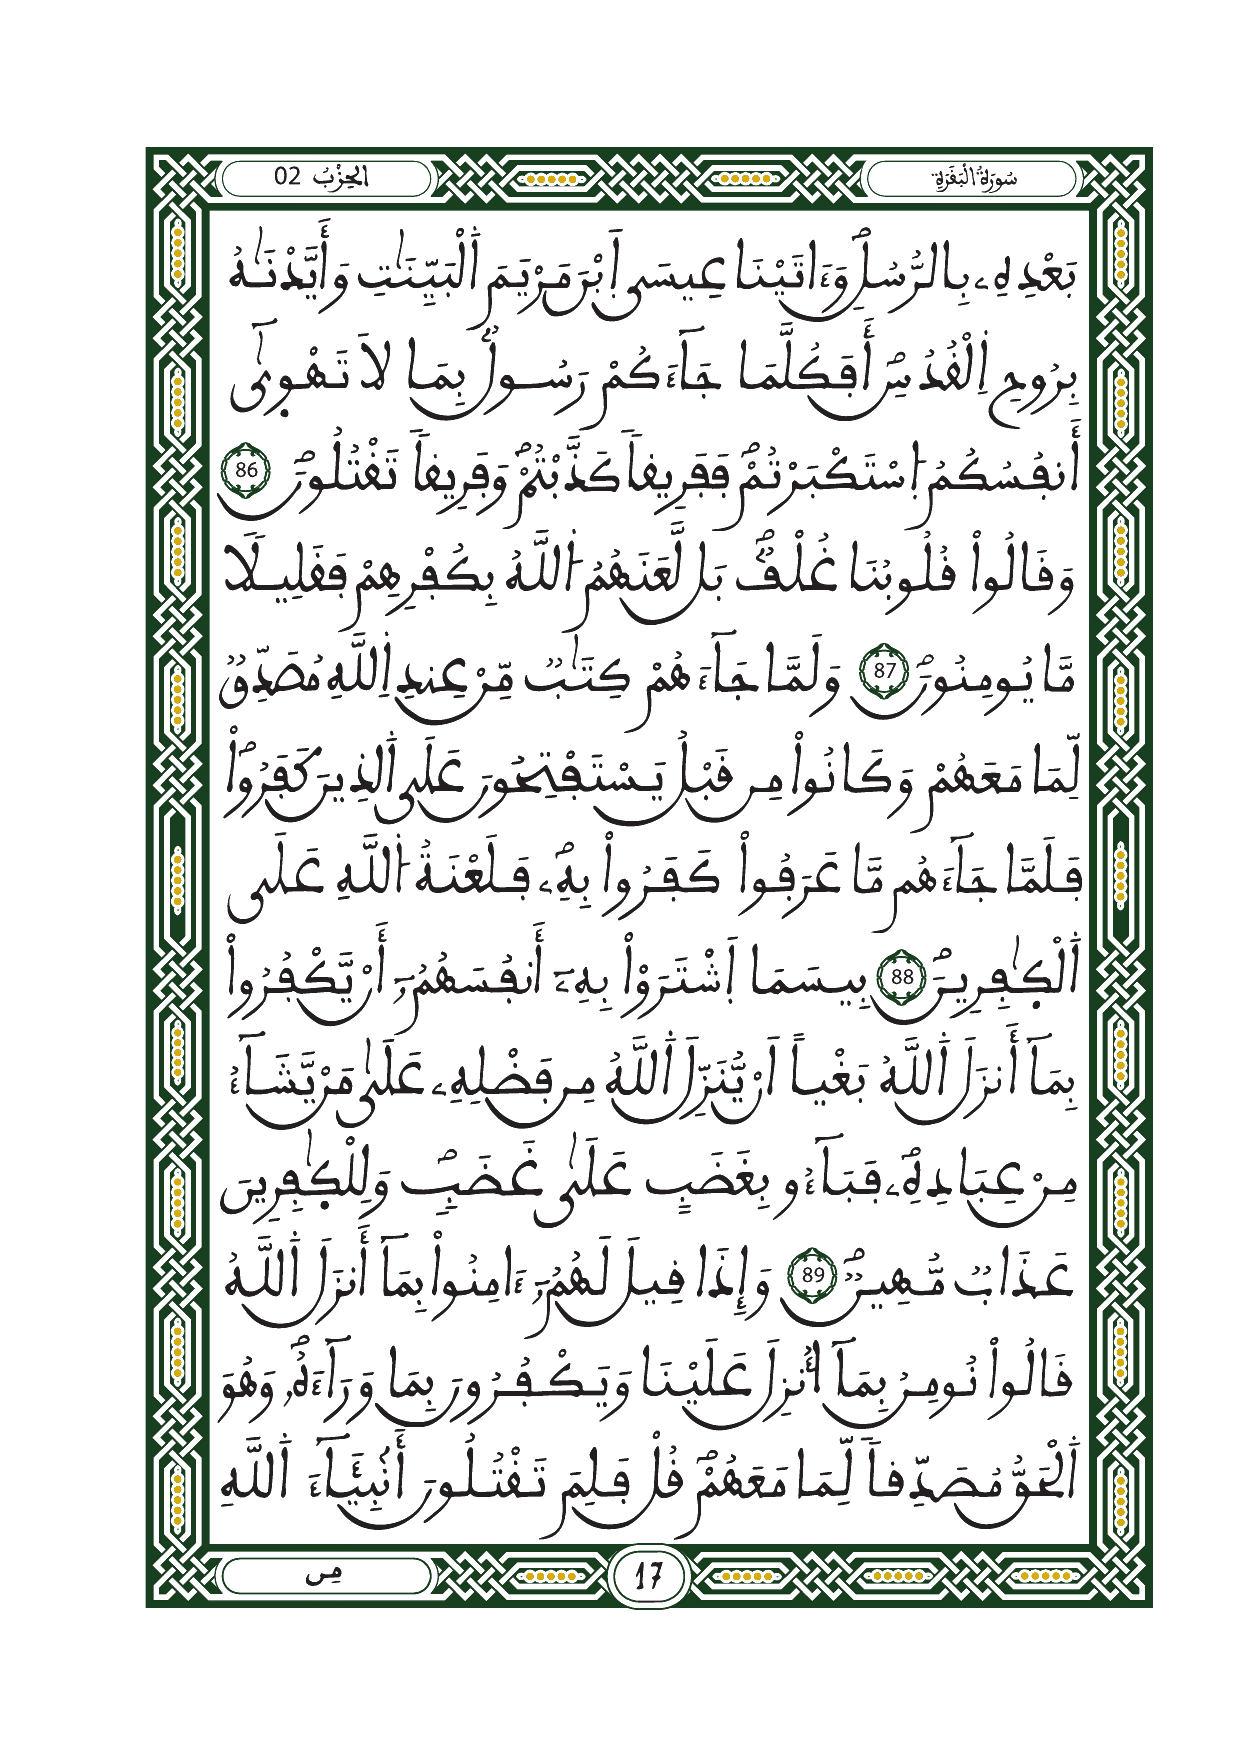 سُورَةُ الْبَقَرَةِ
الحِزْبُ 02
بَعْدِهِۦ بِالرُّسُلِۖ وَءَاتَيْنَا عِيسَى اَبْنَ مَرْيَمَ اَ۬لْبَيِّنَٰتِ وَأَيَّدْنَٰهُ
بِرُوحِ اِ۬لْقُدُسِۖ أَفَكُلَّمَا جَآءَكُمْ رَسُولُۢ بِمَا لَا تَهْو۪ىٰٓ
أَنفُسُكُمُ اُ۪سْتَكْبَرْتُمْۖ فَفَرِيقاٗ كَذَّبْتُمْۖ وَفَرِيقاٗ تَقْتُلُونَۖ 86
وَقَالُواْ قُلُوبُنَا غُلْفُۢۖ بَل لَّعَنَهُمُ اُ۬للَّهُ بِكُفْرِهِمْ فَقَلِيلاٗ
مَّا يُومِنُونَۖ 87 وَلَمَّا جَآءَهُمْ كِتَٰبٞ مِّنْ عِندِ اِ۬للَّهِ مُصَدِّقٞ
لِّمَا مَعَهُمْ وَكَانُواْ مِن قَبْلُ يَسْتَفْتِحُونَ عَلَى اَ۬لذِينَ كَفَرُواْۖ
فَلَمَّا جَآءَهُم مَّا عَرَفُواْ كَفَرُواْ بِهِۦۖ فَلَعْنَةُ اُ۬للَّهِ عَلَى
اَ۬لْكٰ۪فِرِينَۖ 88 بِيسَمَا اَ۪شْتَرَوْاْ بِهِۦٓ أَنفُسَهُمُۥٓ أَنْ يَّكْفُرُواْ
بِمَآ أَنزَلَ اَ۬للَّهُ بَغْياً اَنْ يُّنَزِّلَ اَ۬للَّهُ مِن فَضْلِهِۦ عَلَىٰ مَنْ يَّشَآءُ
مِنْ عِبَادِهِۦۖ فَبَآءُو بِغَضَبٍ عَلَىٰ غَضَبٖۖ وَلِلْكٰ۪فِرِينَ
عَذَابٞ مُّهِينٞۖ 89 وَإِذَا قِيلَ لَهُمُۥٓ ءَامِنُواْ بِمَآ أَنزَلَ اَ۬للَّهُ
قَالُواْ نُومِنُ بِمَآ أُنزِلَ عَلَيْنَا وَيَكْفُرُونَ بِمَا وَرَآءَهُۥۖ وَهُوَ
اَ۬لْحَقُّ مُصَدِّقاٗ لِّمَا مَعَهُمْۖ قُلْ فَلِمَ تَقْتُلُونَ أَنۢبِيَآءَ اَ۬للَّهِ
17
مِن